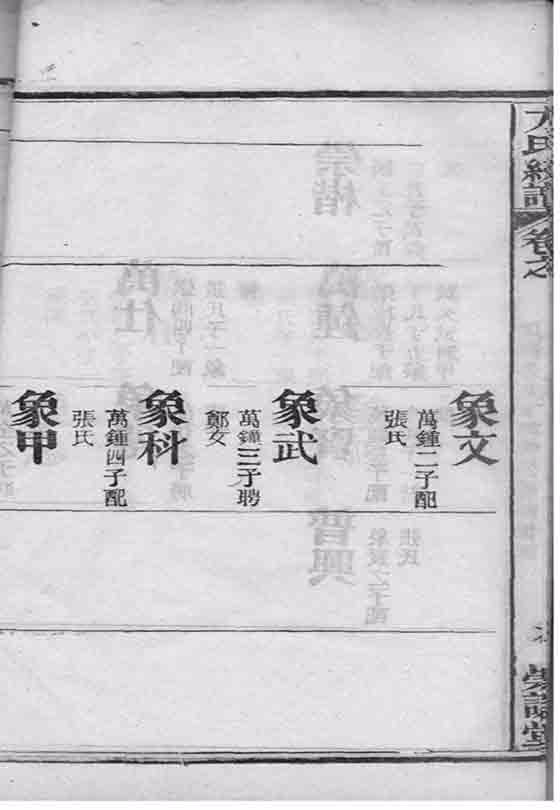 方氏総譜
卷之
象文
萬鍾二子配
張氏
象武
萬鍾三子聘
鄭女
象科
萬鍾四子配
張氏
象甲